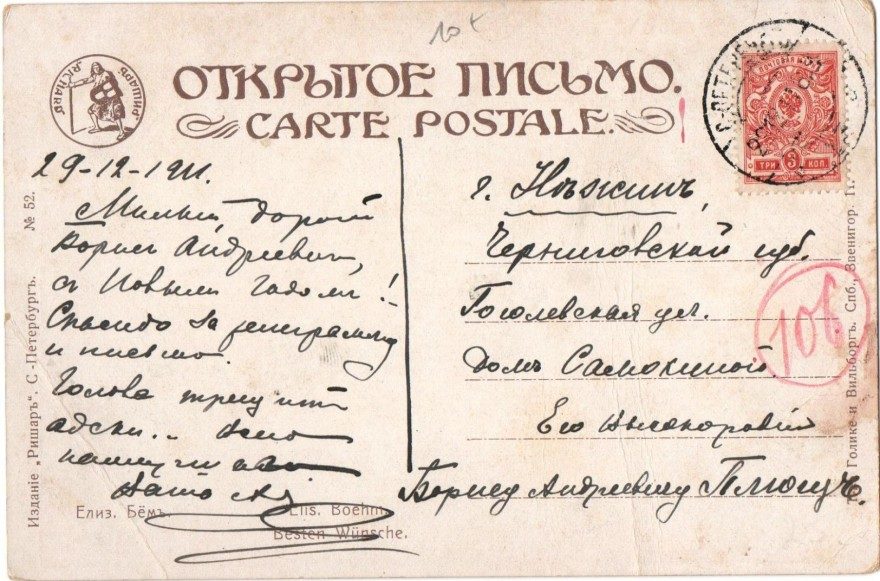 10к
РИШАРЪ
"RICHARD"
ОТКРЫТОЕ ПИСЬМО.
CARTE POSTALE.
ПОЧТОВАЯ МАРКА
ТРИ 3 КОП
29-12-1911.
Милый, дорогой
Борисъ Андреевич,
съ Новымъ Годомъ!
Спасибо за телеграмму
и письмо.
Голова трещитъ
адски..
напишу
г. Нѣжинъ,
Черниговской губ.
Гоголевская ул.
Домъ Самокиной
Его Высокородiю
Борису Андреевичу Плющъ.
106
Елиз. Бёмъ.
Elis. Boehm.
Besten Wünsche.
Изданіе „Ришаръ". С.-Петербургъ. № 52.
Голике и Вильборгъ. Спб., Звенигор.